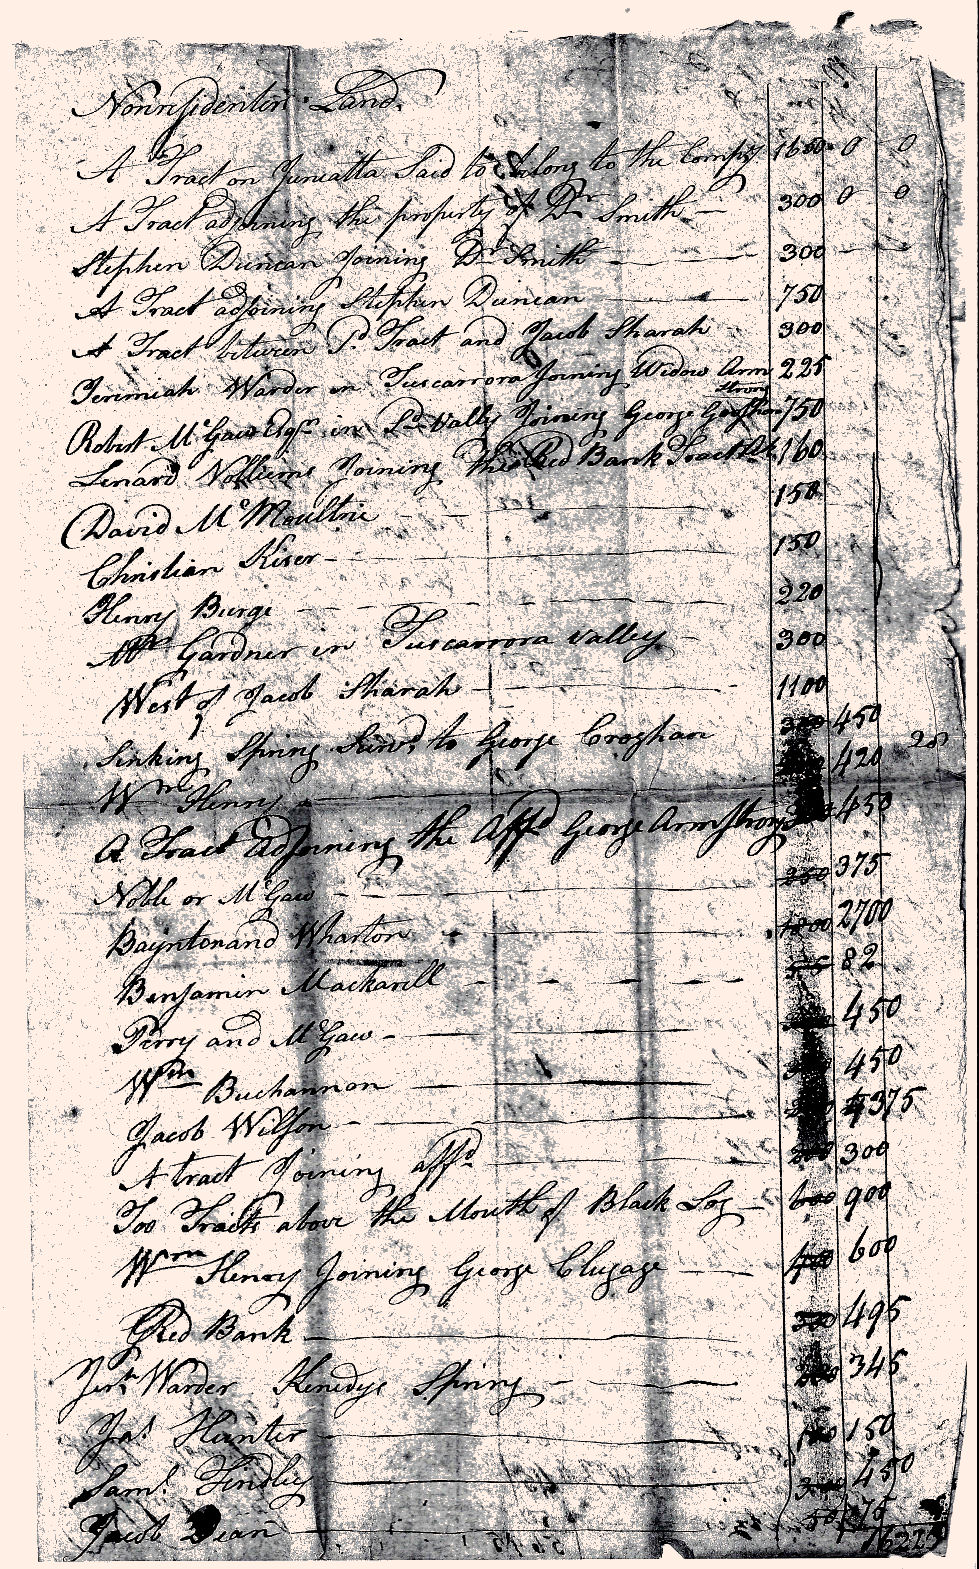 Nonresidenters Land.
A Tract on Juniatta Said to belong to the Compy 1600 0 0
A Tract adjoining the property of Dr Smith 300 0 0
Stephen Duncan Joining Dr Smith 300
A Tract adjoining Stephen Duncan 750
A Tract between sd Tract and Jacob Sharah 300
Jeremiah Warder in Tuscarrora Joining Widow Arm 225
strong
Robert McGaw Esqr in sd Vally Joining George Croghan 750
Lenard Joining the Red Bank Tract 160
David McMoultrie 150
Christian Kiser 150
Henry Burge 220
Mr Gardner in Tuscarrora valley 300
West of Jacob Sharah 1100
Sinking Spring to George Croghan 300 450
Wm Henry 420
A Tract adjoining the Affd George Armstrong 450
Noble or McGaw 250 375
Bayntonand Wharton 1800 2700
Benjamin Mackarell 82
Perry and McGaw 450
Wm Buchannan 450
Jacob Wilson 375
A tract Joining affd 200 300
Too Tracts above the Mouth of Black Log 600 900
Wm Henry Joining George Clugage 400 600
Red Bank 495
Jerh Warder Kenedys Spring 345
Jas Hunter 100 150
Saml Findley 300 450
Jacob Dean 50 75
16225